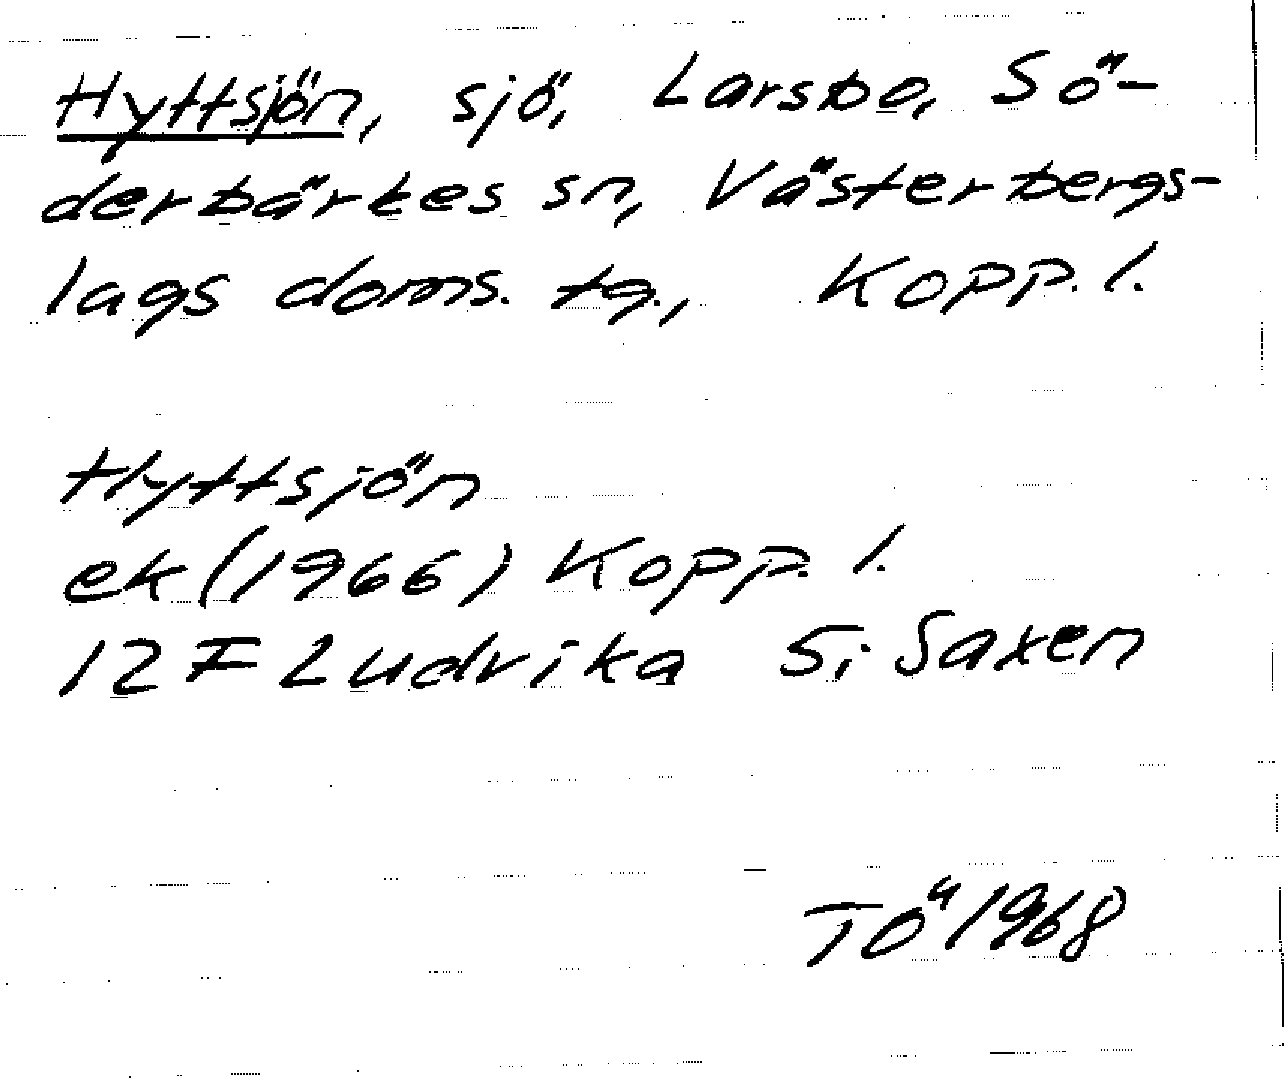 Hyttsjön, sjö, Larsbo, Sö-
derbärkes sn, Västerbergs-
lags doms. tg., Kopp. l.
Hyttsjön
ek (1966) Kopp. l.
12 F Ludvika S. Saxen
TÖ 1968